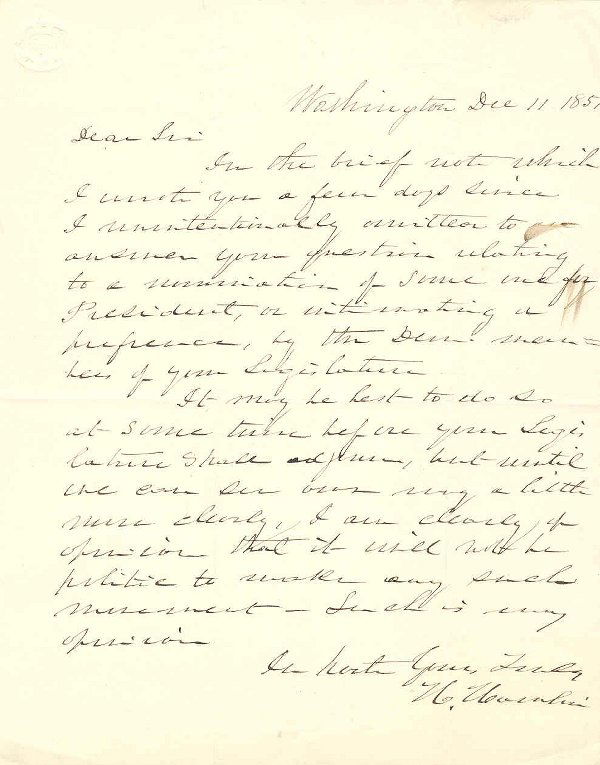 Washington Dec 11 1851
Dear Sir
In the brief note which
I wrote you a few days since
I unintentionally omitted to an
answer your question relating
to a nomination of some one for
President, or intimating a
preference, by the Dem. mem=
bers of your Legislature
It may be best to do so
at some time before your Legis
lature shall adjourn, but until
we can see our way a little
more clearly, I am clearly of
opinion that it will not be
politic to make any such
movement – Such is my
opinion
In haste Yours Truly
H. Hamlin